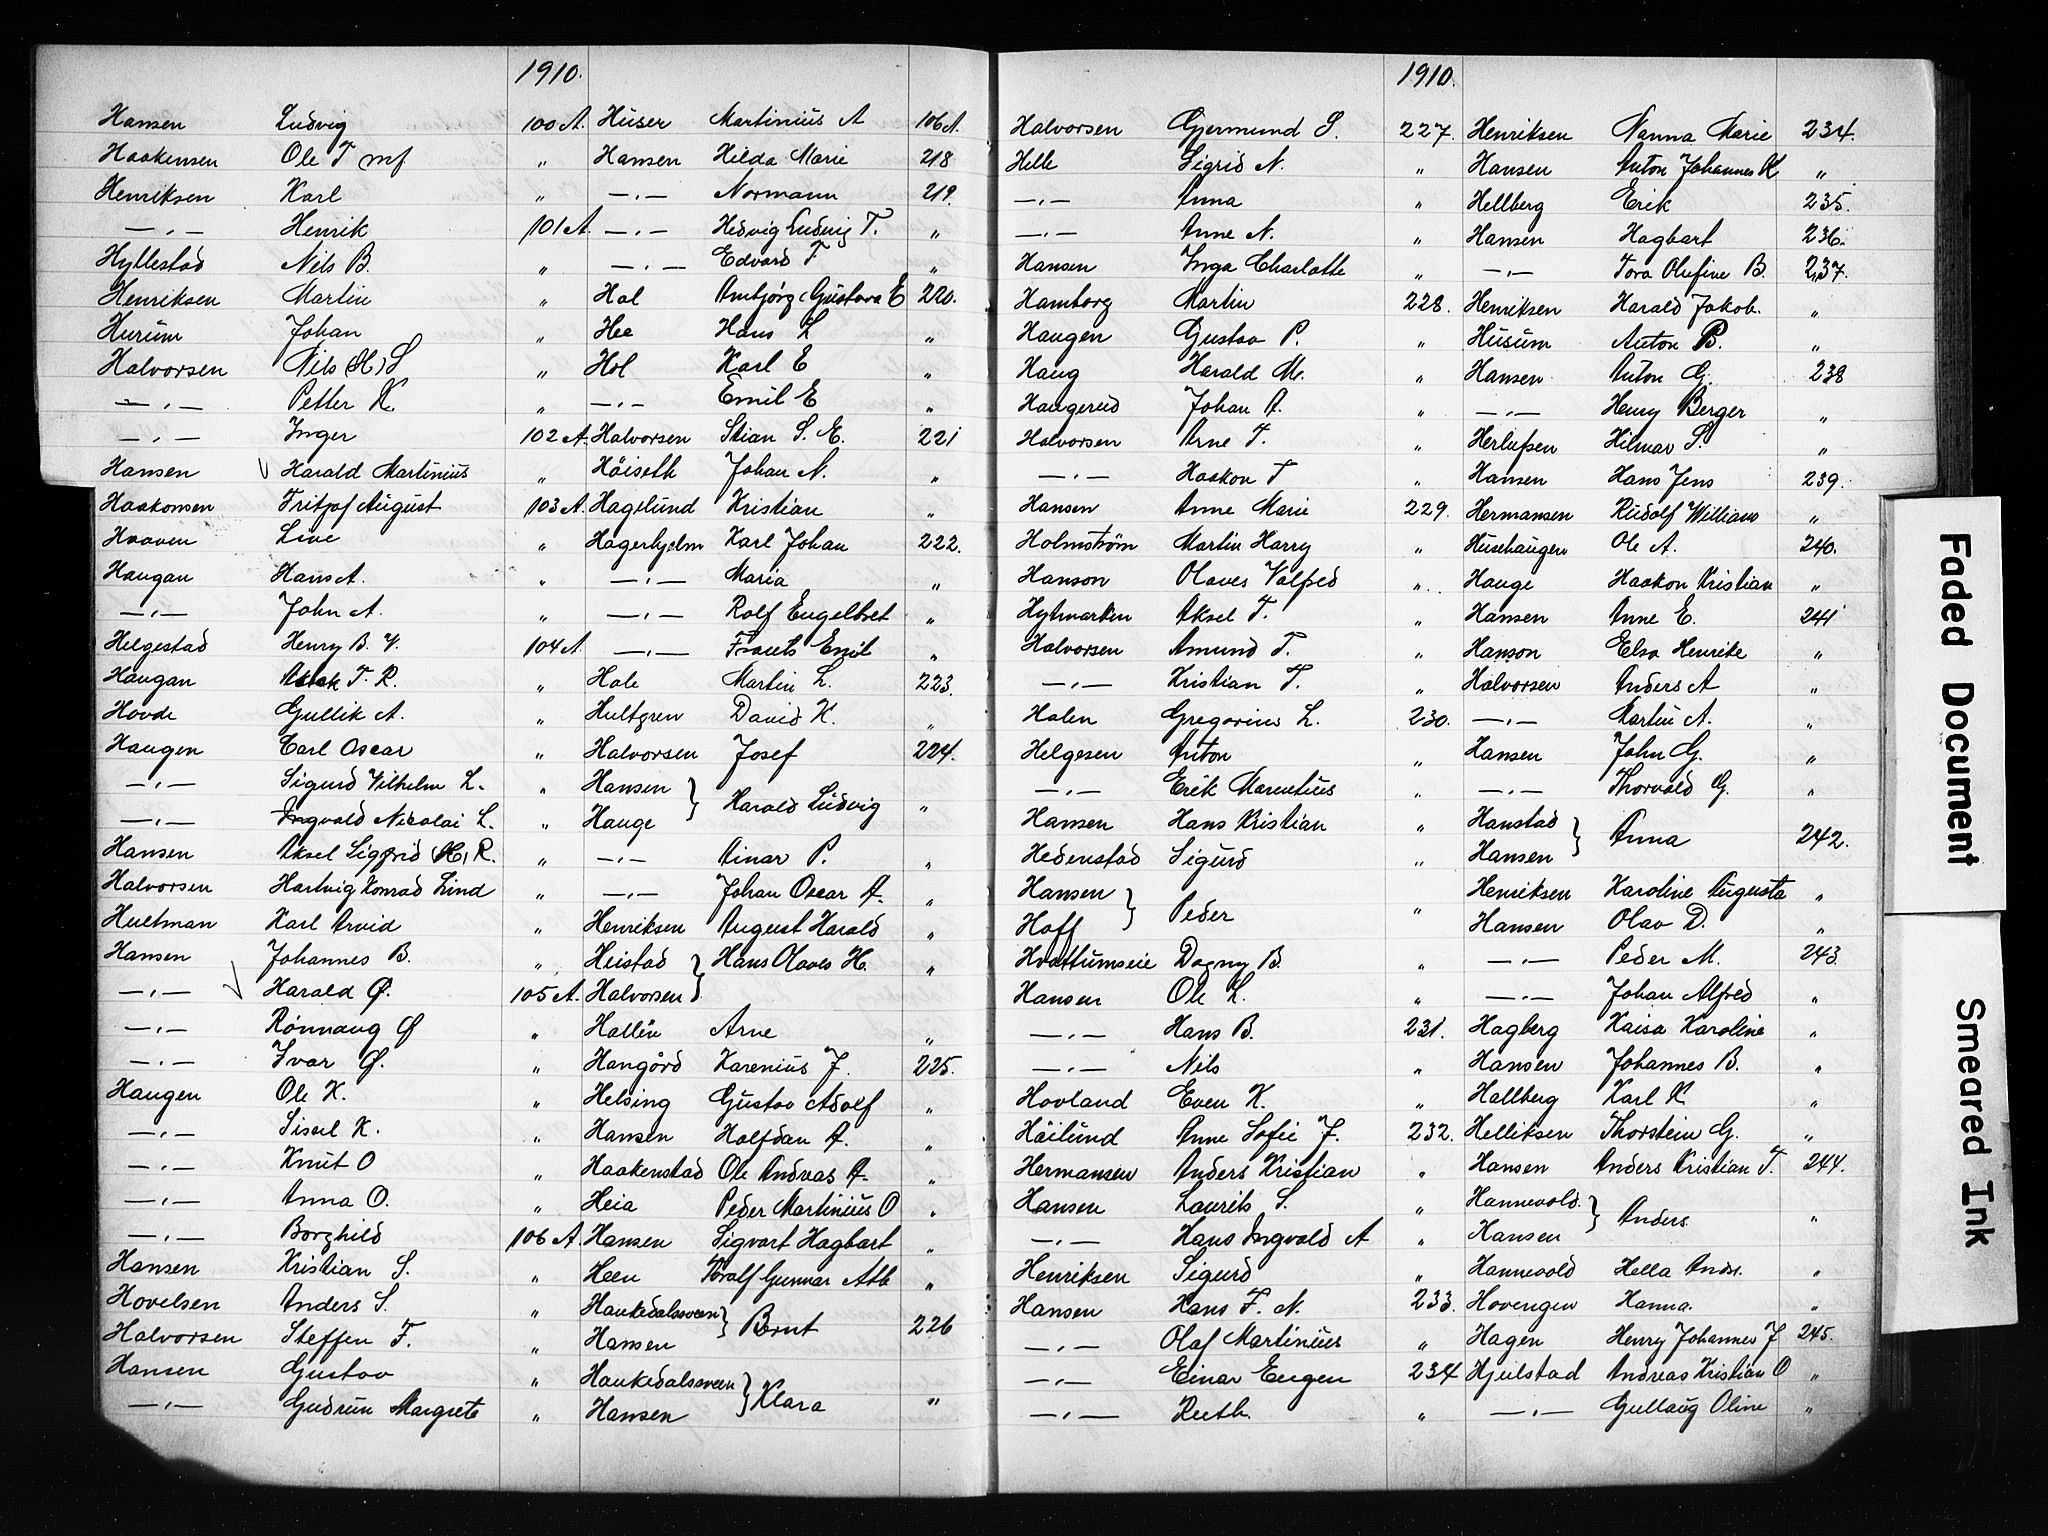 1910.
Hansen Ludvig 100 A.
Haakensen Ole T mf "
Henriksen Karl "
—"— Henrik 101 A.
Hyllestad Nils B. "
Henriksen Martin "
Hurum Johan "
Halvorsen Nils (H) S "
—"— Petter K. "
—"— Inger 102 A.
Hansen √ Harald Martinius
Haakonsen Fritjof August 103 A.
Hoaven Live "
Haugan Hans A. "
—"— John A. "
Helgestad Henry B. V. 104 A
Haugan T. R. "
Hovde Gullik A. "
Haugen Carl Oscar "
—"— Sigurd Vilhelm L. "
—"— Ingvald Nicolai L. "
Hansen Aksel Sigfrid (H) R. "
Halvorsen Hartvig Konrad Lind "
Hultman Karl Arvid "
Hansen Johannes B. "
—"— √ Harald Ø. 105 A.
—"— Rønnaug Ø "
—"— Ivar Ø. "
Haugen Ole K. "
—"— Sissel K. "
—"— Knut O "
—"— Anna O. "
—"— Borghild 106 A.
Hansen Kristian S. "
Hovelsen Anders S. "
Halvorsen Steffen F. "
Hansen Gustav "
—"— Gudrun Margrete "
Huser Martinius A 106 A.
Hansen Hilda Marie 218
—"— Normann 219.
—"— Hedvig Ludvig T. "
—"— Edvard F "
Hol Ambjørg (Gustava E 220.
Hee Hans L "
Hol Karl E "
—"— Emil E "
Halvorsen Stian S. E. 221
Høiseth Johan N. "
Hagelund Kristian "
Hagerhjelm Karl Johan 222.
—"— Maria "
—"— Rolf Engelbret "
—"— Frants Emil "
Hole Martin L. 223.
Hultgren David K. "
Halvorsen Josef 224.
Hansen
Hauge } Harald Ludvig "
—"— Einar P. "
—"— Johan Oscar A. "
Henriksen August Harald "
Heistad } Hans Olaves H. "
Halvorsen
Hallén Arne "
Hangård Karenius J. 225.
Helsing Gustav Adolf "
Hansen Halfdan A. "
Haakenstad Ole Andreas A. "
Heia Peder Martinius O "
Hansen Sigvart Hagbart "
Heen Toralf Gunnar Atle "
Haukedalsveen
Hansen } Bernt 226
Haukedalsveen
Hansen } Klara "
1910.
Halvorsen Gjermund S. 227.
Helle Sigrid N. "
—"— Anna "
—"— Anne N. "
Hansen Inga Charlotte "
Hamborg Martin 228.
Haugen Gustav P. "
Haug Harald M. "
Haugerud Johan A. "
Halvorsen Arne T. "
—"— Haakon T "
Hansen Anne Marie 229.
Holmstrøm Martin Harry "
Hanson Olaves Valfred "
Hytmarken Aksel T. "
Halvorsen Amund T. "
—"— Kristian T. "
Holen Gregorius L. 230.
Helgesen Anton "
—"— Erik Marentius "
Hansen Hans Kristian "
Hedenstad Sigurd "
Hansen
Hoff } Peder "
Hvattumseie Dagny B. "
Hansen Ole L. "
—"— Hans B. 231.
—"— Nils "
Hovland Even K. "
Høilund Anne Sofie J. 232.
Hermansen Anders Kristian "
Hansen Laurits S. "
—"— Hans Ingvald A "
Henriksen Sigurd "
Hansen Hans F. N. 233.
—"— Olaf Martinius "
—"— Einar Eugen 234
—"— Ruth "
Henriksen Nanna Marie 234.
Hansen Anton Johannes K "
Hellberg Erik 235.
Hansen Hagbart 236.
—"— Tora Olufine B. 237.
Henriksen Harald Jakob. "
Husum Anton B. "
Hansen Anton G. 238
—"— Henry Berger "
Herlufsen Hilmar S. "
Hansen Hans Jens 239.
Hermansen Rudolf William "
Husehaugen Ole A. 240.
Hauge Haakon Kristian "
Hansen Anne E. 241
Hanson Elsa Henrike "
Halvorsen Anders A "
—"— Martin A. "
Hansen John G. "
—"— Thorvald G. "
Hanstad
Hansen } Anna 242.
Henriksen Karoline Augusta "
Hansen Olav D. "
—"— Peder M. 243.
—"— Johan Alfred "
Hagberg Kaisa Karoline "
Hansen Johannes B. "
Hallberg Karl K "
Helliksen Thorstein G. "
Hansen Anders Kristian T. 244.
Hannevold
Hansen } Anders. "
Hannevold Hella Andr. "
Hovengen Hanna. "
Hagen Henry Johannes J 245.
Hjulstad Andreas Kristian O "
—"— Gullaug Oline "
Faded Document
Smeared Ink